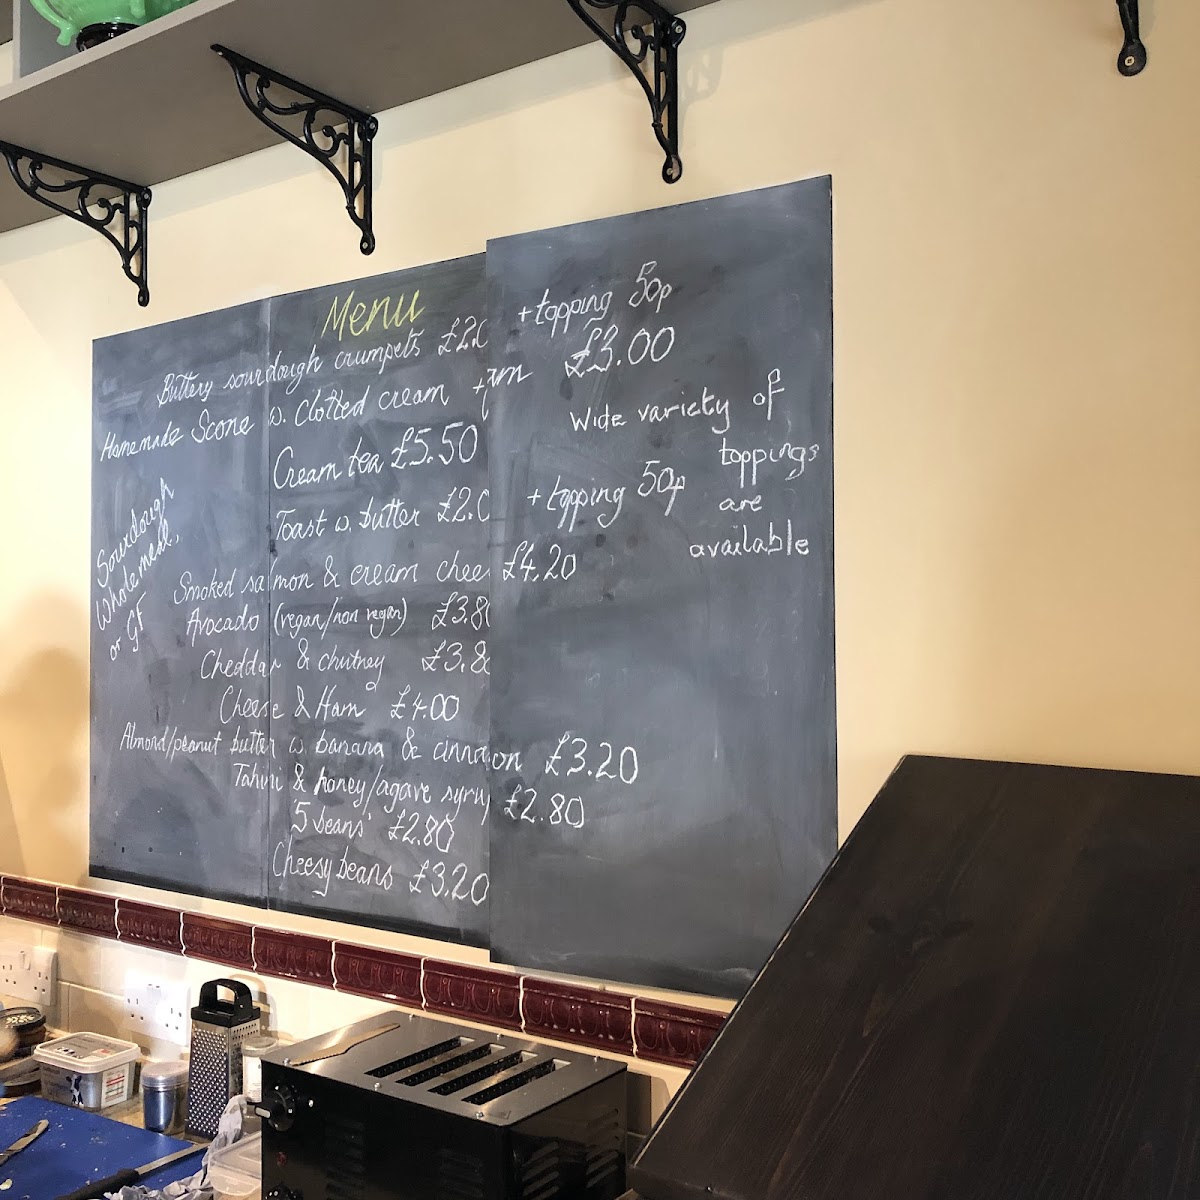 Menu
Buttery sourdough crumpets £2.0 + topping 50p
Homemade Scone w. Clotted cream + jam £3.00
Cream tea £5.50
Wide variety of
toppings
are
available
Toast w. butter £2.0 + topping 50p
Sourdough
Wholemeal,
or GF
Smoked salmon & cream chee £4.20
Avocado (vegan/non vegan) £3.80
Cheddar & chutney £3.80
Cheese & Ham £4.00
Almond/peanut butter w. banana & cinnamon £3.20
Tahini & honey/agave syrup £2.80
5 beans £2.80
Cheesy beans £3.20